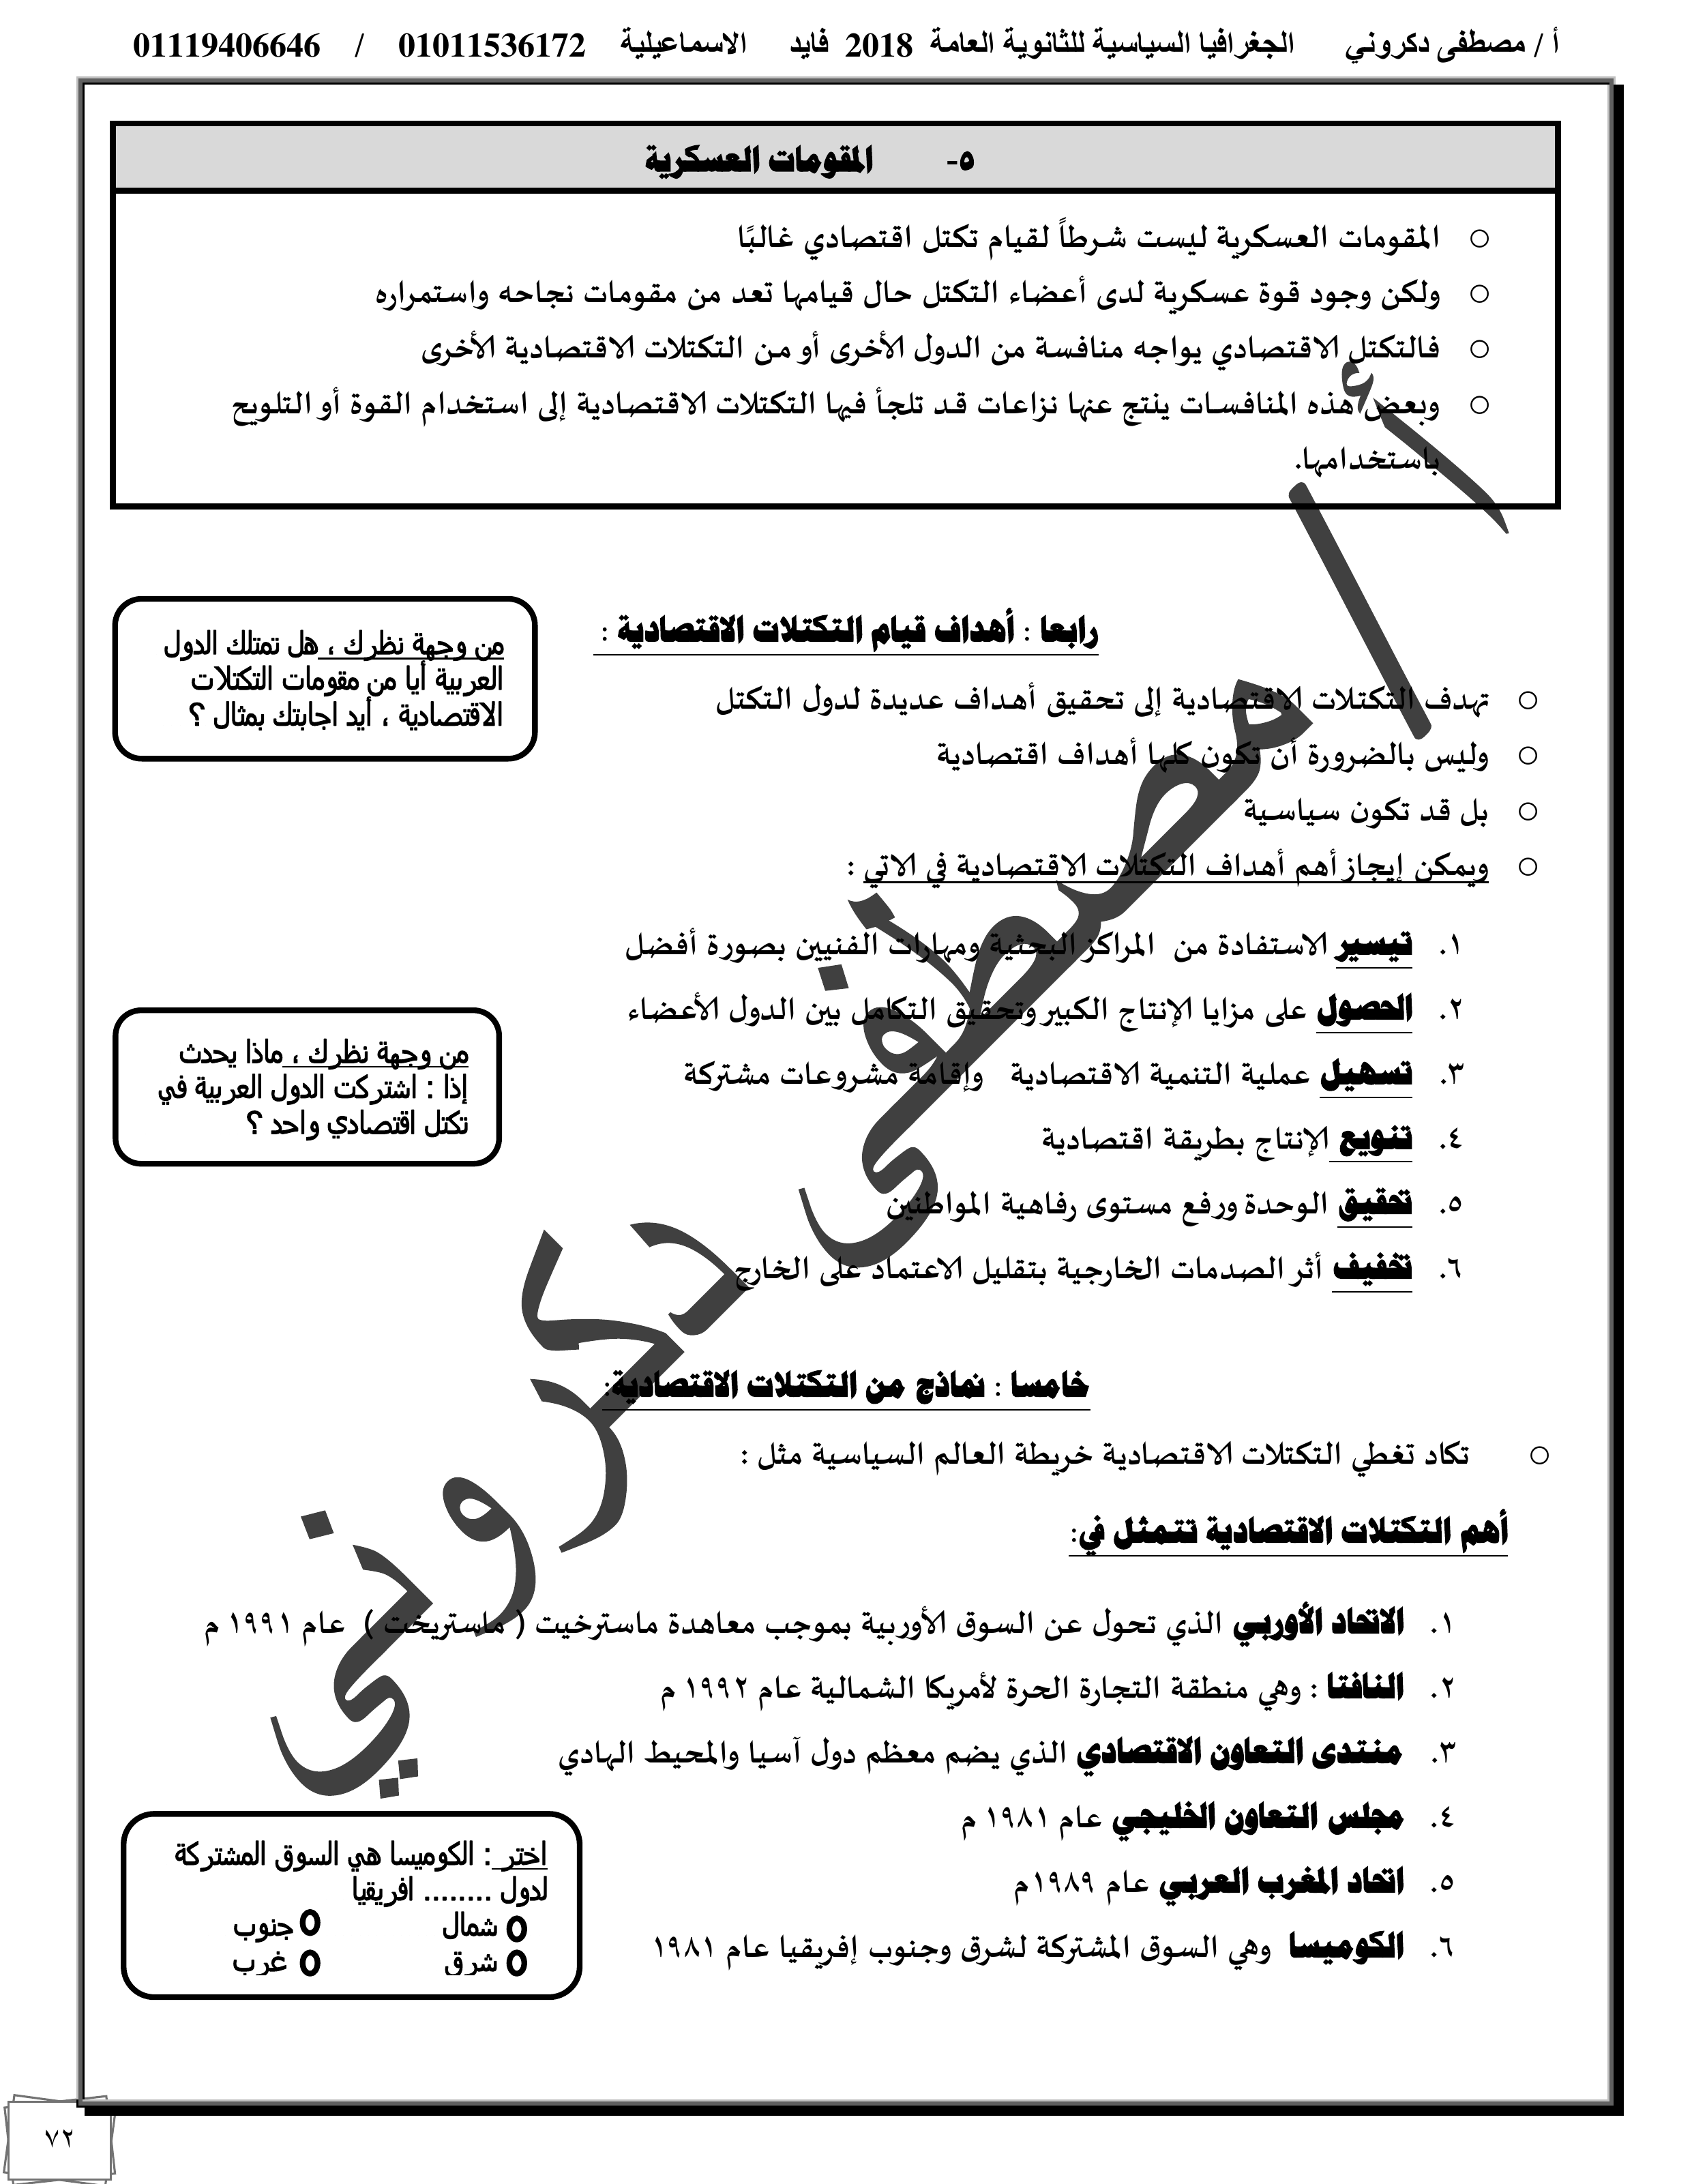 أ / مصطفى دكروني الجغرافيا السياسية للثانوية العامة 2018 فايد الاسماعيلية 01011536172 / 01119406646
٥- المقومات العسكرية
المقومات العسكرية ليست شرطاً لقيام تكتل اقتصادي غالبًا
ولكن وجود قوة عسكرية لدى أعضاء التكتل حال قيامها تعد من مقومات نجاحه واستمراره
فالتكتل الاقتصادي يواجه منافسة من الدول الأخرى أو من التكتلات الاقتصادية الأخرى
وبعض هذه المنافسات ينتج عنها نزاعات قد تلجأ فيها التكتلات الاقتصادية إلى استخدام القوة أو التلويح
باستخدامها.
رابعا : أهداف قيام التكتلات الاقتصادية :
من وجهة نظرك ، هل تمتلك الدول
العربية أيا من مقومات التكتلات
الاقتصادية ، أيد اجابتك بمثال ؟
تهدف التكتلات الاقتصادية إلى تحقيق أهداف عديدة لدول التكتل
وليس بالضرورة أن تكون كلها أهداف اقتصادية
بل قد تكون سياسية
ويمكن إيجاز أهم أهداف التكتلات الاقتصادية في الاتي :
١. تيسير الاستفادة من المراكز البحثية ومهارات الفنيين بصورة أفضل
٢. الحصول على مزايا الإنتاج الكبير وتحقيق التكامل بين الدول الأعضاء
٣. تسهيل عملية التنمية الاقتصادية وإقامة مشروعات مشتركة
٤. تنويع الإنتاج بطريقة اقتصادية
٥. تحقيق الوحدة ورفع مستوى رفاهية المواطنين
٦. تخفيف أثر الصدمات الخارجية بتقليل الاعتماد على الخارج
من وجهة نظرك ، ماذا يحدث
إذا : اشتركت الدول العربية في
تكتل اقتصادي واحد ؟
خامسا : نماذج من التكتلات الاقتصادية:
تكاد تغطي التكتلات الاقتصادية خريطة العالم السياسية مثل :
أهم التكتلات الاقتصادية تتمثل في:
١. الاتحاد الأوربي الذي تحول عن السوق الأوربية بموجب معاهدة ماسترخيت ( ماستريخت ) عام ١٩٩١ م
٢. النافتا : وهي منطقة التجارة الحرة لأمريكا الشمالية عام ١٩٩٢ م
٣. منتدى التعاون الاقتصادي الذي يضم معظم دول آسيا والمحيط الهادي
٤. مجلس التعاون الخليجي عام ١٩٨١ م
٥. اتحاد المغرب العربي عام ١٩٨٩م
٦. الكوميسا وهي السوق المشتركة لشرق وجنوب إفريقيا عام ١٩٨١
اختر : الكوميسا هي السوق المشتركة
لدول ........ افريقيا
شمال جنوب
شرق غرب
أ / مصطفى دكروني
٧٢